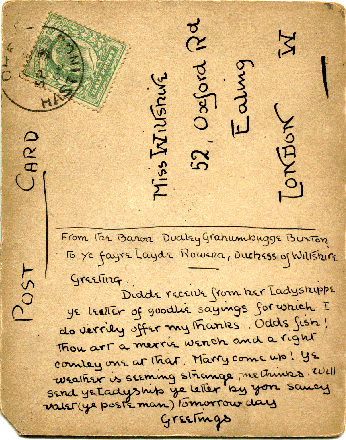 POST CARD
HASTINGS
Miss Willshire
52, Oxford Rd
Ealing
LONDON W
From the Baron Dudley Granumbugge Buxton
To ye fayre Layde Rowena, Duchess of Wiltshire
Greeting.
Didde receive from her Ladyshippe
ye letter of goodlie sayings for which I
do verrily offer my thanks. Odds fish!
thou art a merrie wench and a right
comley one at that. Marry come up! Ye
weather is seeming strange, me thinks. Will
send ye Ladyship ye letter by yon saucy
valet (ye poste man) tomorrow day
Greetings